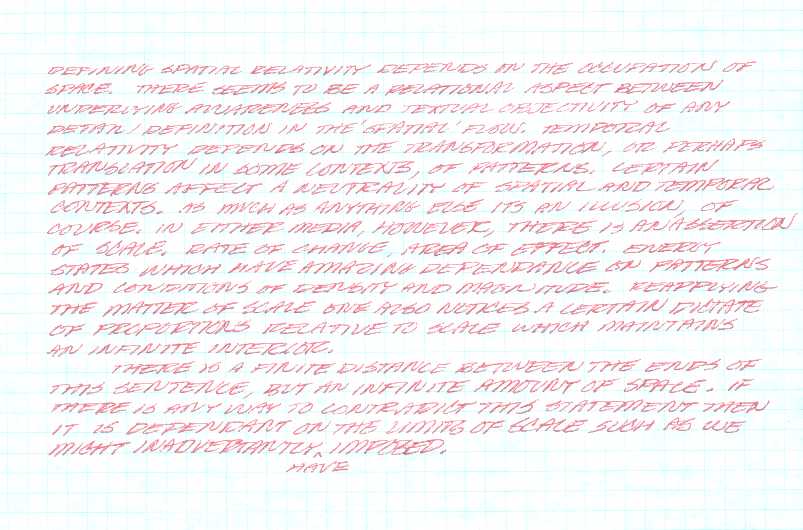 DEFINING SPATIAL RELATIVITY DEPENDS ON THE OCCUPATION OF
SPACE. THERE SEEMS TO BE A RELATIONAL ASPECT BETWEEN
UNDERLYING AWARENESS AND TEXTUAL OBJECTIVITY OF ANY
DETAIL/DEFINITION IN THE 'SPATIAL' FLOW. TEMPORAL
RELATIVITY DEPENDS ON THE TRANSFORMATION, OR PERHAPS
TRANSLATION IN SOME CONTEXTS, OF PATTERNS. CERTAIN
PATTERNS AFFECT A NEUTRALITY OF SPATIAL AND TEMPORAL
CONTEXTS. AS MUCH AS ANYTHING ELSE ITS AN ILLUSION, OF
COURSE. IN EITHER MEDIA, HOWEVER, THERE IS AN ASSERTION
OF SCALE. RATE OF CHANGE, AREA OF EFFECT. ENERGY
STATES WHICH HAVE AMAZING DEPENDANCE ON PATTERNS
AND CONDITIONS OF DENSITY AND MAGNITUDE. REAPPLYING
THE MATTER OF SCALE ONE ALSO NOTICES A CERTAIN DICTATE
OF PROPORTIONS RELATIVE TO SCALE WHICH MAINTAINS
AN INFINITE INTERIOR.
THERE IS A FINITE DISTANCE BETWEEN THE ENDS OF
THIS SENTENCE, BUT AN INFINITE AMOUNT OF SPACE. IF
THERE IS ANY WAY TO CONTRADICT THIS STATEMENT THEN
IT IS DEPENDANT ON THE LIMITS OF SCALE SUCH AS WE
MIGHT INADVERTANTLY ^ IMPOSED.
HAVE